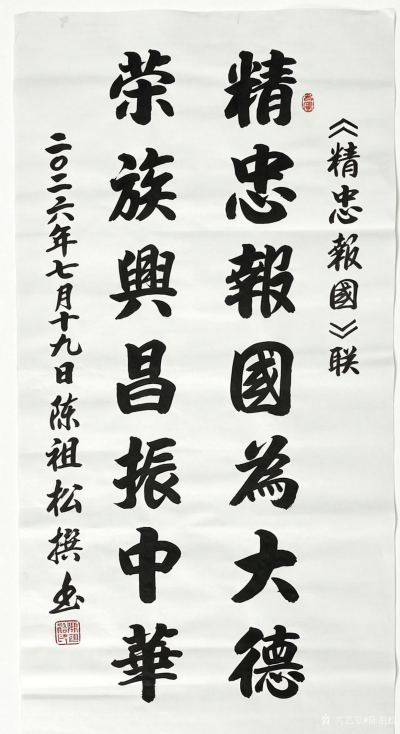 《精忠報國》联
精忠報國為大德
荣族興昌振中華
二〇二六年七月十九日陈祖松撰书